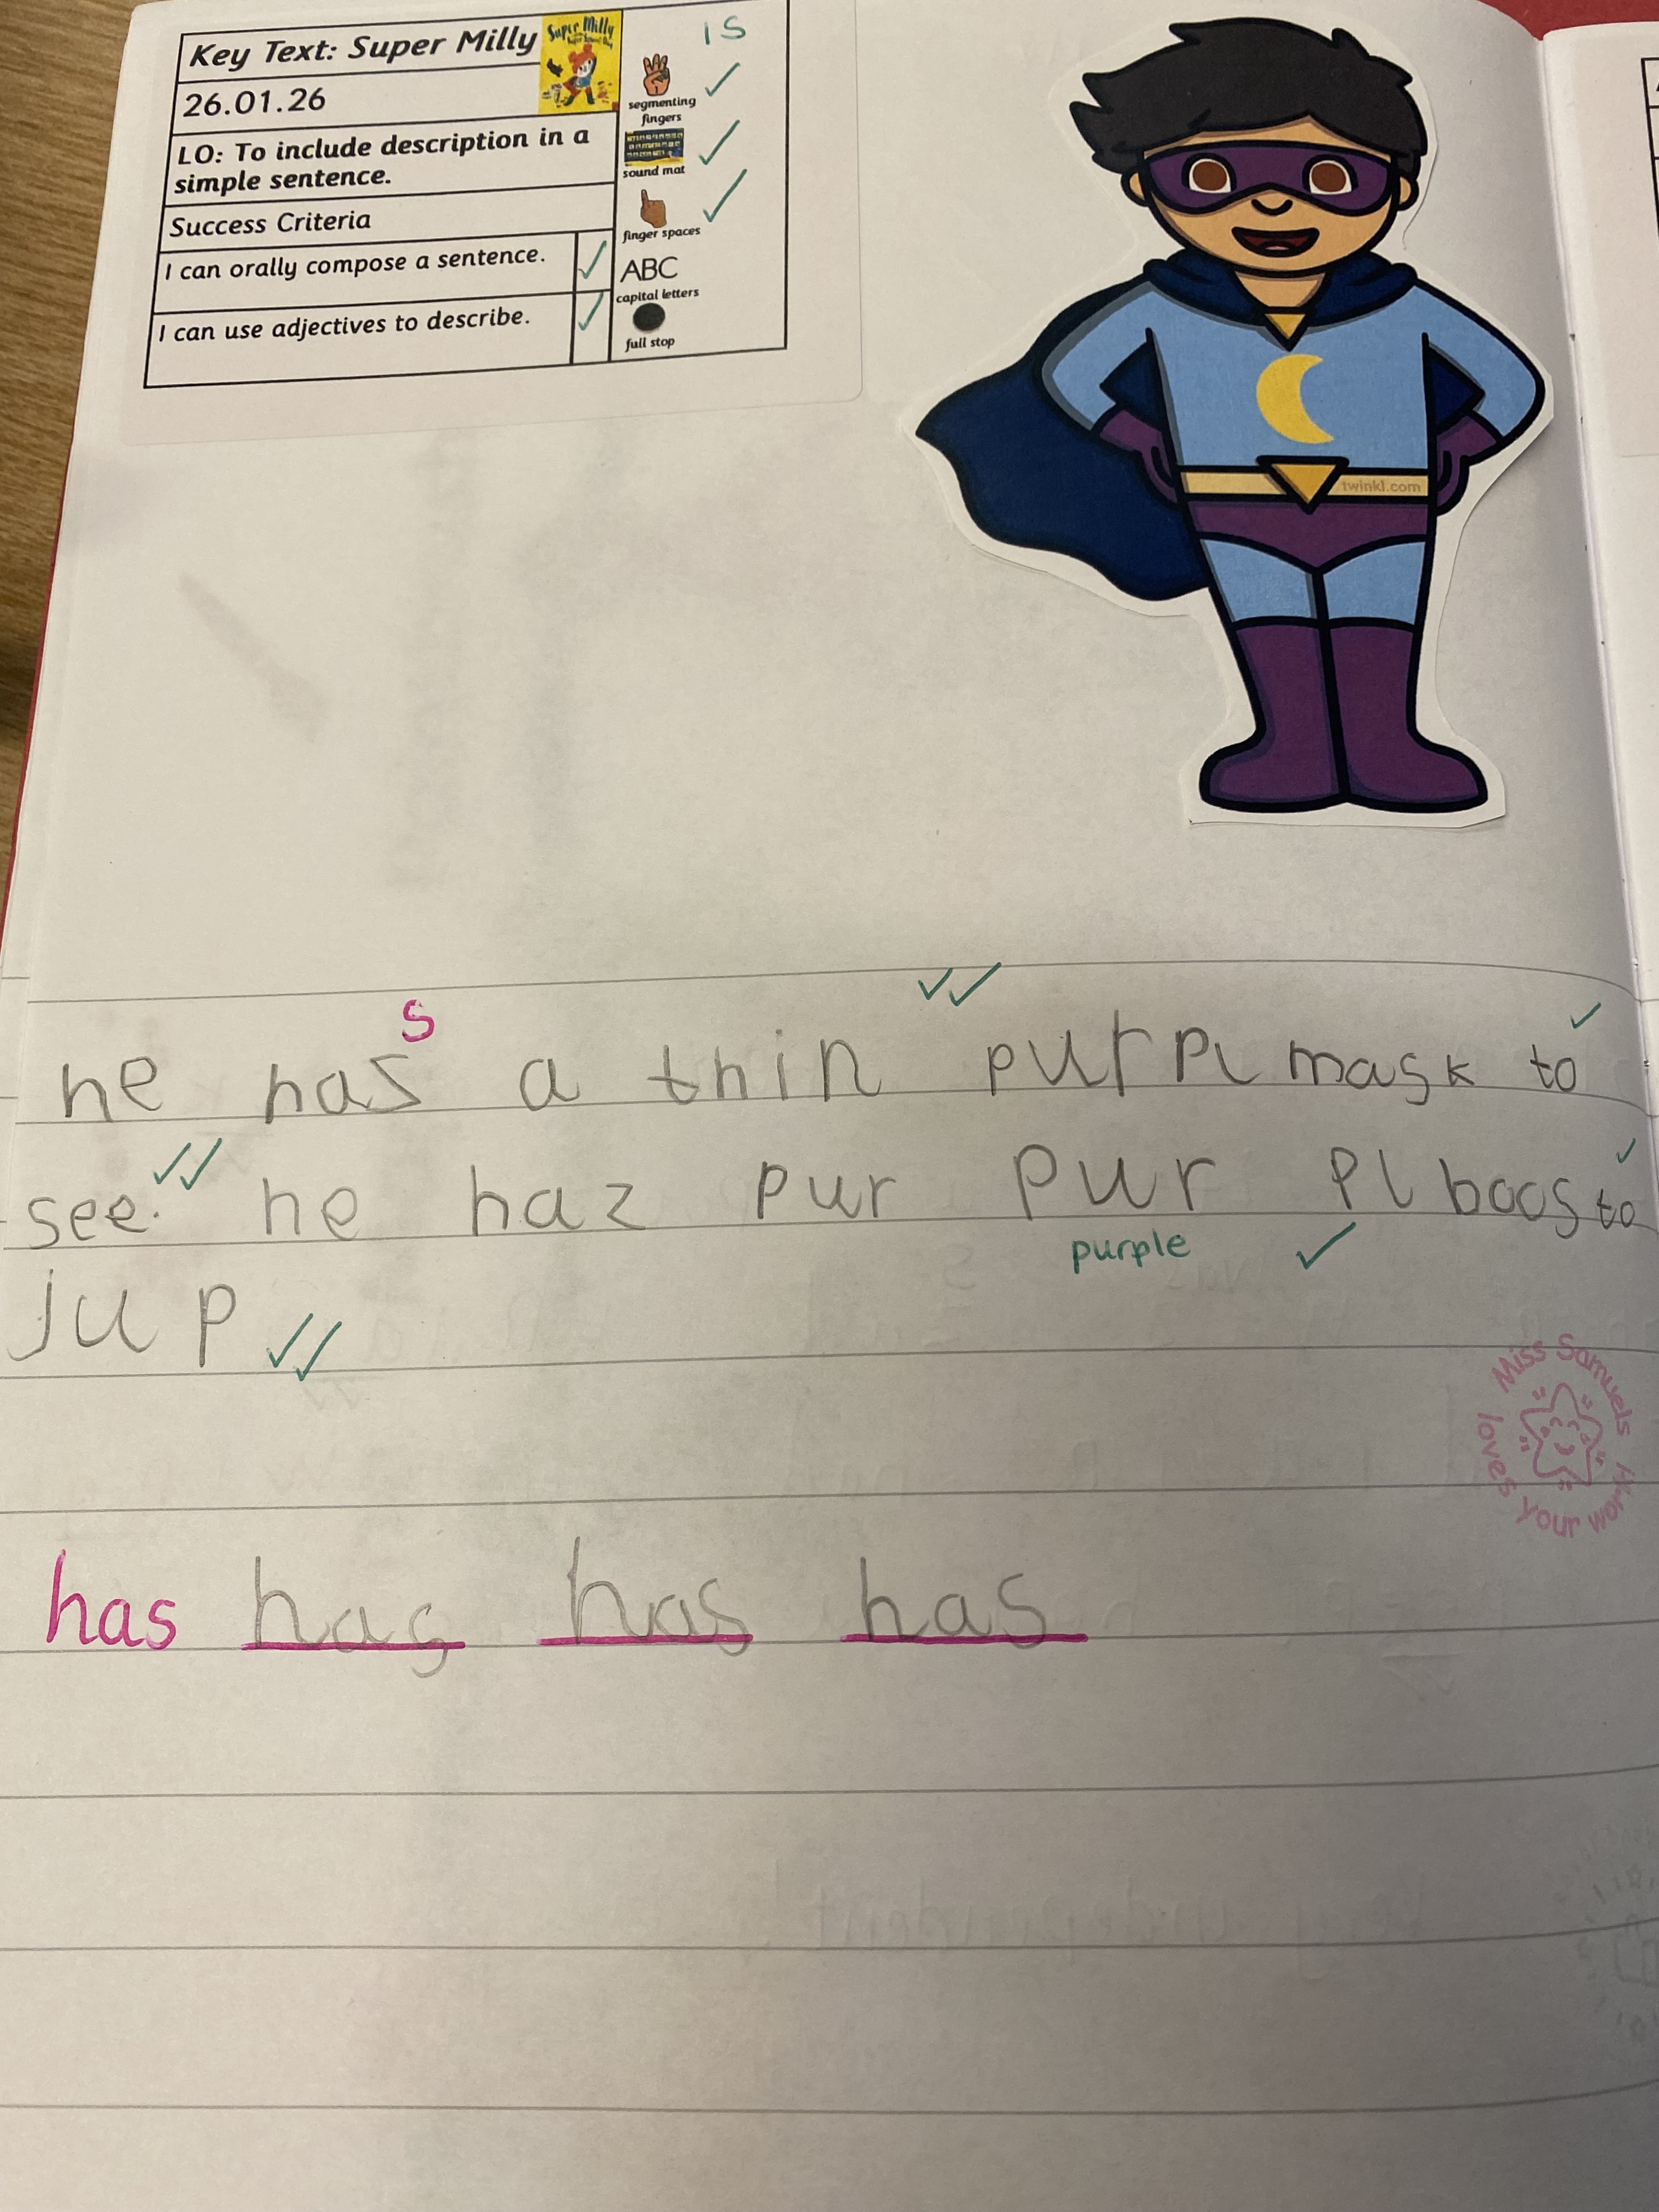 Key Text: Super Milly
Super Milly
IS
26.01.26
segmenting fingers
LO: To include description in a
simple sentence.
sound mat
Success Criteria
finger spaces
I can orally compose a sentence.
ABC
capital letters
I can use adjectives to describe.
full stop
twinkl.com
s
he has a thin purpl mask to
see. he haz pur pur pl boos to
purple
jup
Miss Samuels loves your work
has has has has